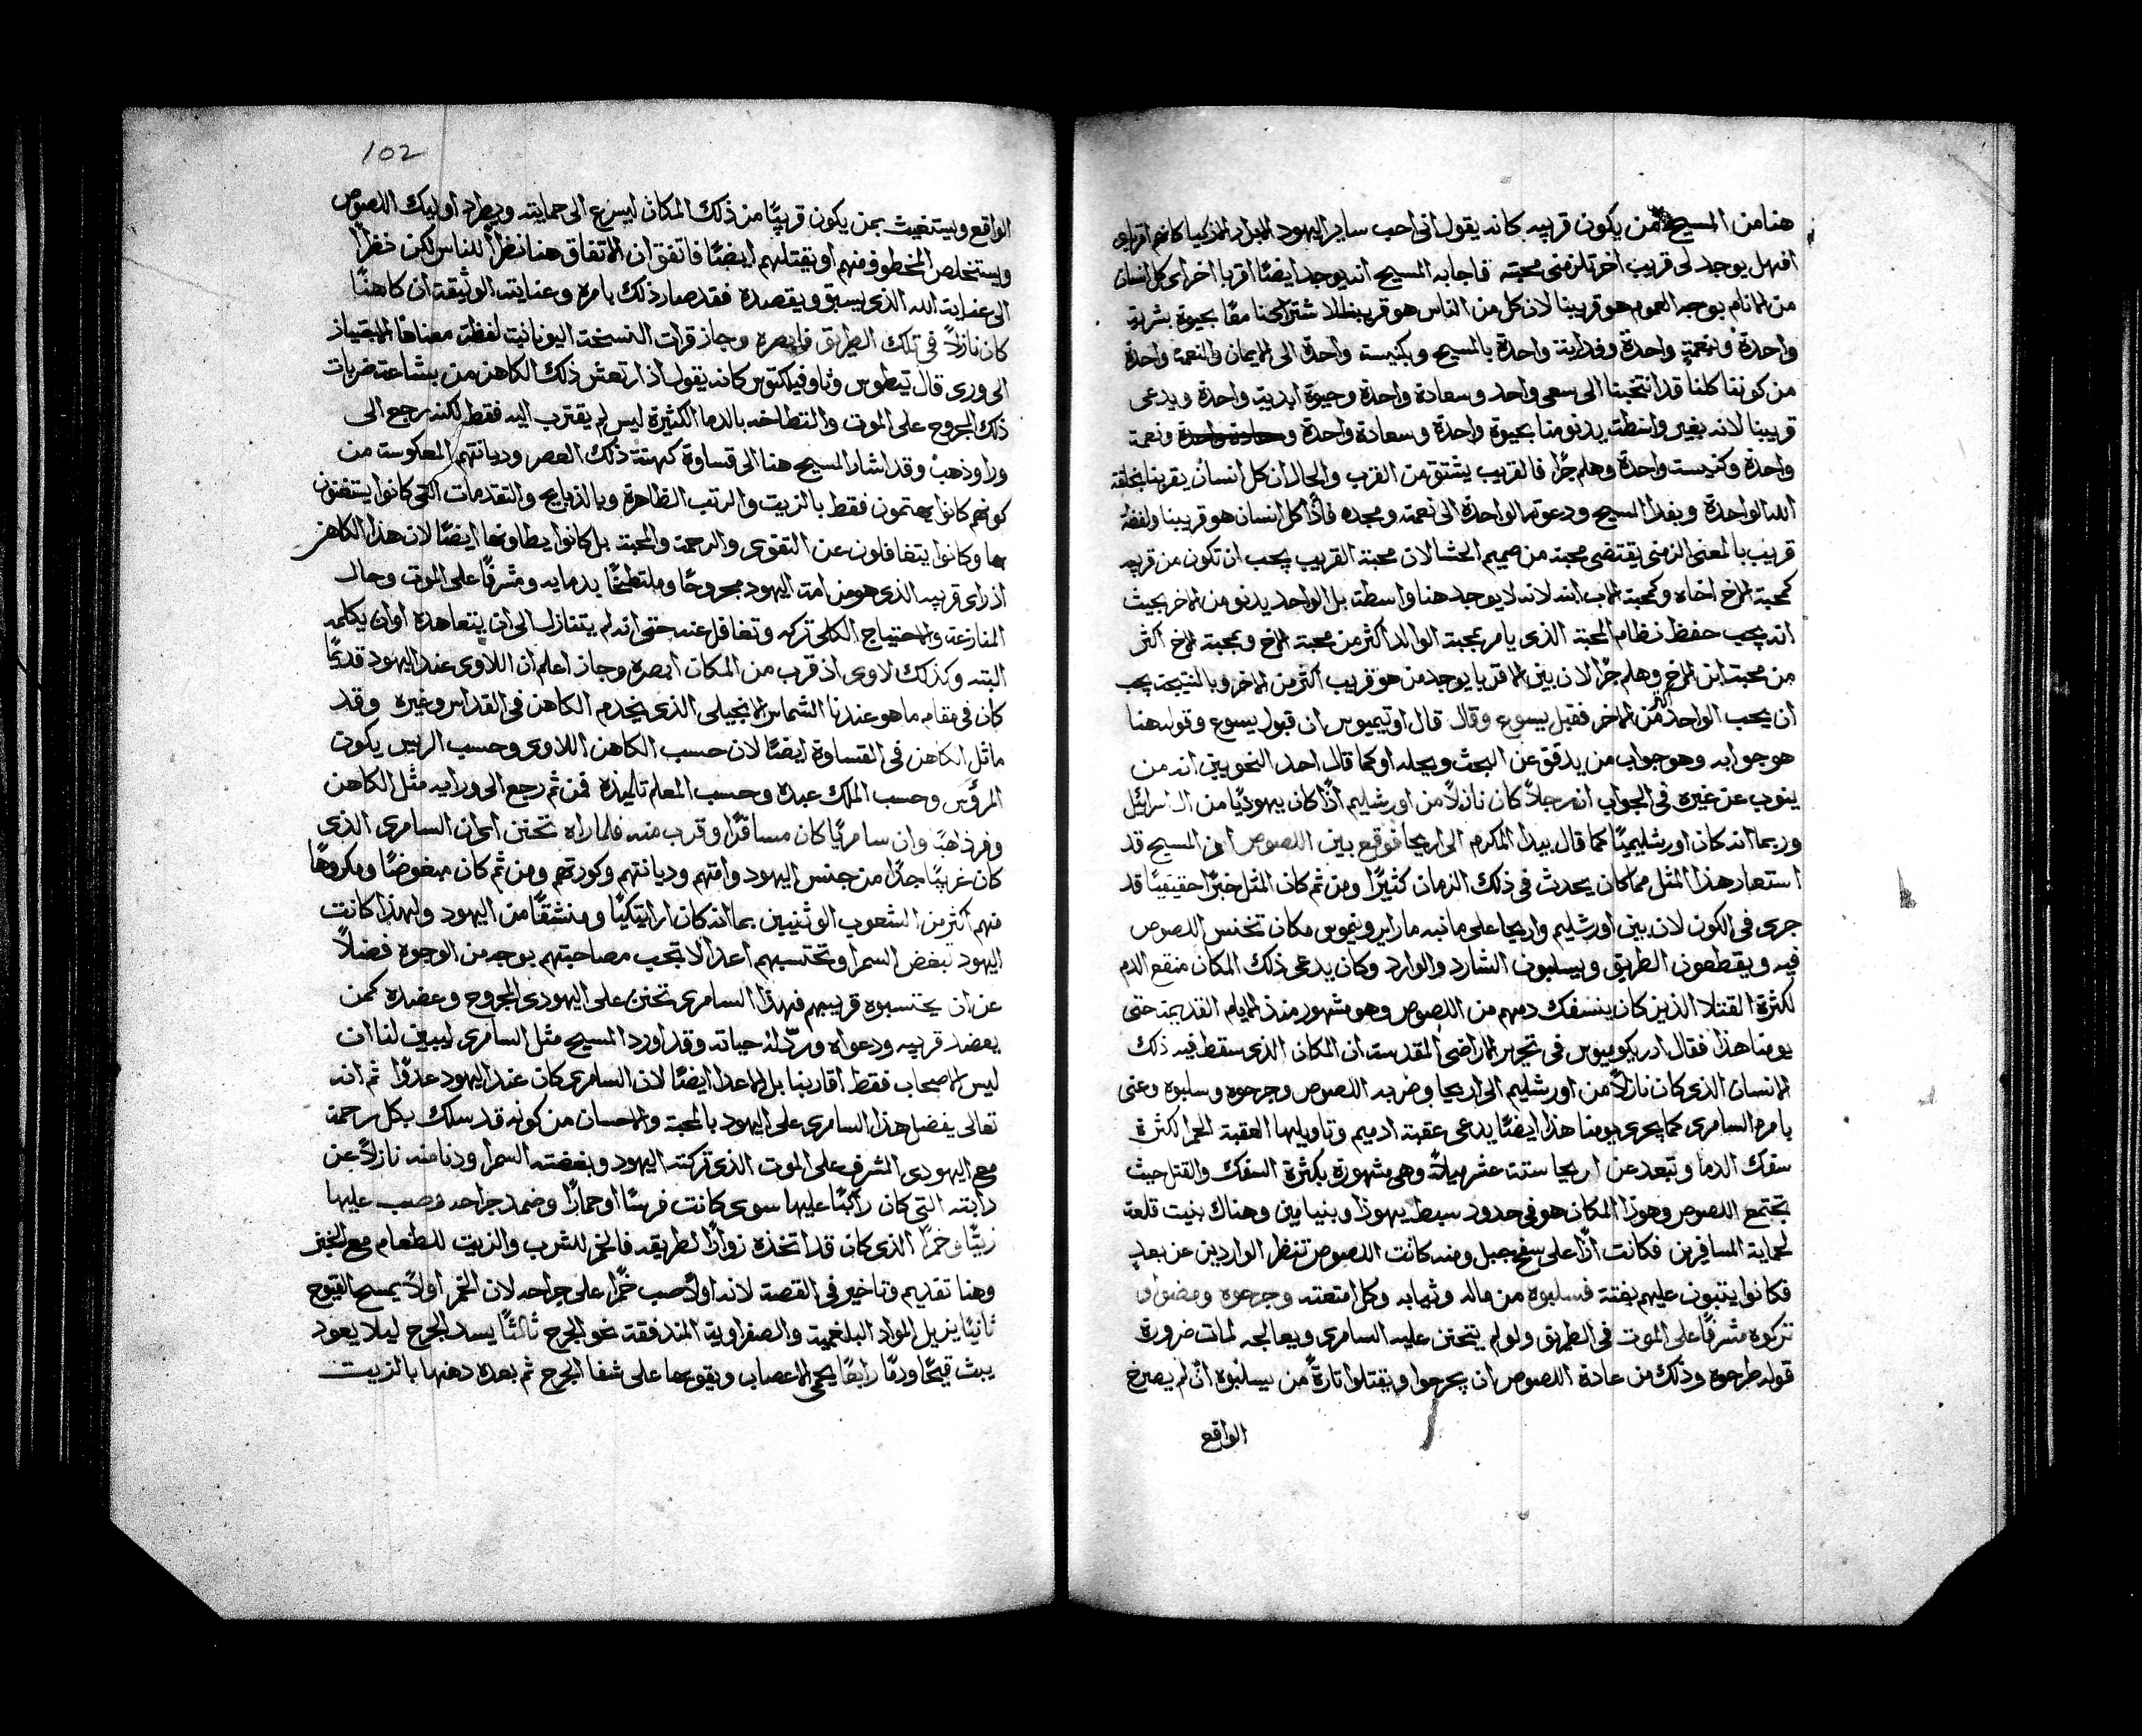 هنا من المسيح من يكون قريبه كانه يقول انى احب ساير اليهود الابرار الازكيا كانهم اقرباى
افهل يوجد لى قريب اخر تلزمنى محبته فاجابه المسيح انه يوجد ايضًا اقربا اخراى كل انسان
من الانام بوجه العموم هو قريبنا لان كل من الناس هو قريبنا لاشتراكنا معًا بحيوة بشرية
واحدة وبنعمةٍ واحدة وفدايةٍ واحدة بالمسيح وبكنيسة واحدة الى الايمان والنعمة واحدة
من كوننا كلنا قد انتخبنا الى سعى واحد وسعادة واحدة وحيوة ابدية واحدة ويدعى
قريبنا لانه بغير واسطة يدنو منا بحيوة واحدة وسعادة واحدة ونعمة
واحدة وكنيسة واحدة وهلم جرًا فالقريب يشتق من القرب والحال ان كل انسان يقربنا بخلقة
الله الواحدة وبفدا المسيح ودعوته الواحدة الى نعمته ومجده فاذًا كل انسان هو قريبنا ولفظة
قريب بالمعنى الزمنى يقتضى محبة من صميم الحشا لان محبة القريب يجب ان تكون من قريبه
كمحبة الاخ اخاه وكمحبة الاب ابنه لانه لا يوجد هنا واسطة بل الواحد يدنو من الاخر بحيث
انه يجب حفظ نظام المحبة الذى يامر بمحبة الوالد اكثر من محبة الاخ وبمحبة الاخ اكثر
من محبة ابن الاخ وهلم جرًا لان بين الاقربا يوجد من هو قريب اكثر من الاخر وبالنتيجة يجب
ان يحب الواحد اكثر من الاخر فقبل يسوع وقال قال اوتيميوس ان قبول يسوع وقوله هنا
هو جوابه وهو جواب من يدقق عن البحث ويحله او كما قال احد النحويين انه من
ينوب عن غيره فى الجواب ان رجلاً كان نازلاً من اورشليم اذًا كان يهوديًا من ال اسرائيل
وربما انه كان اورشليميًا كما قال بيدا المكرم الى اريحا فوقع بين اللصوص ان المسيح قد
استعار هذا المثل مما كان يحدث فى ذلك الزمان كثيرًا ومن ثم كان المثل خبرًا حقيقيًا قد
جرى فى الكون لان بين اورشليم واريحا على ما نبه مار ايرونيموس مكان تختنس اللصوص
فيه ويقطعون الطريق ويسلبون الشارد والوارد وكان يدعى ذلك المكان منقع الدم
لكثرة القتلا الذين كان ينسفك دمهم من اللصوص وهو مشهور منذ الايام القديمة حتى
يومنا هذا فقال ادريكوميوس فى تحرير الاراضى المقدسة ان المكان الذى سقط فيه ذلك
الانسان الذى كان نازلاً من اورشليم الى اريحا وضربه اللصوص وجرحوه وسلبوه وعنى
بامره السامرى كما يحرى يومنا هذا ايضًا يدعى عقبة ادميم وتاويلها العقبة الحمرا لكثرة
سفك الدما وتبعد عن اريحا ستة عشر ميلاً وهى مشهورة بكثرة السفك والقتل حيث
تجتمع اللصوص وهوذا المكان هو فى حدود سبط يهوذا وبنيامين وهناك بنيت قلعة
لحماية المسافرين فكانت اذًا على سفح جبل ومنه كانت اللصوص تنظر الواردين عن بعدٍ
فكانوا يثبون عليهم بغتة فسلبوه من ماله وثيابه وكل امتعته وجرحوه ومضوا و
تركوه مشرفًا على الموت فى الطريق ولو لم يتحنن عليه السامرى ويعالجه لمات ضرورة
قوله طرحوه وذلك من عادة اللصوص ان يجرحوا ويقتلوا تارةً من يسلبوه ان لم يصرخ
الواقع
102
الواقع ويستغيث بمن يكون قريبًا من ذلك المكان ليسرع الى حمايته ويطرد اوليك اللصوص
ويستخلص المخطوف منهم او يقتلهم ايضًا فاتفق ان الاتفاق هنا نظرًا للناس لكن نظرًا
الى عناية الله الذى يسبق ويقصده فقد صار ذلك بامره وعنايته الوثيقة ان كاهنًا
كان نازلاً فى تلك الطريق فابصره وجاز قرات النسخة اليونانية لفظة معناها الاجتياز
الى ورى قال تيطوس وثاوفيلكتوس كانه يقول اذ ارتعش ذلك الكاهن من بشاعة ضربات
ذلك المجروح على الموت والتطاخه بالدما الكثيرة ليس لم يقترب اليه فقط لكنه رجع الى
ورا وذهب وقد اشار المسيح هنا الى قساوة كهنة ذلك العصر وديانتهم المعكوسة من
كونهم كانوا يهتمون فقط بالزيت والرتب الظاهرة وبالذبايح والتقدمات التى كانوا يستغنون
بها وكانوا يتغافلون عن التقوى والرحمة والمحبة بل كانوا يطاونها ايضًا لان هذا الكاهن
اذ راى قريبه الذى هو من امة اليهود مجروحًا وملتطخًا بدمايه ومشرفًا على الموت وحال
المنازعة والاحتياج الكلى تركه وتغافل عنه حتى انه لم يتنازل الى ان يتعاهده او ان يكلمه
البتة وكذلك لاوى اذ قرب من المكان ابصره وجاز اعلم ان اللاوى عند اليهود قديمًا
كان فى مقام ما هو عندنا الشماس الانجيلى الذى يخدم الكاهن فى القداس وغيره وقد
ماثل الكاهن فى القساوة ايضًا لان حسب الكاهن اللاوى وحسب الرييس يكون
المرؤس وحسب الملك عبده وحسب المعلم تلميذه فمن ثم رجع الى ورايه مثل الكاهن
وفر ذاهبًا وان سامريًا كان مسافرًا وقرب منه فلما راه تحنن اى ان السامرى الذى
كان غريبًا جدًا من جنس اليهود وامتهم وديانتهم وكورتهم ومن ثم كان مبغوضًا ومكروهًا
منهم اكثر من الشعوب الوثنيين بما انه كان اراتيكيًا ومنشقًا من اليهود ولهذا كانت
اليهود تبغض السمرا وتحتسبهم اعدا لا تجب مصاحبتهم بوجه من الوجوه فضلاً
عن ان يحتسبوه قريبهم فهذا السامرى تحنن على اليهودى المجروح وعضده كمن
يعضد قريبه ودعواه وردّ له حياته وقد اورد المسيح مثل السامرى ليبين لنا ان
ليس الاصحاب فقط اقاربنا بل الاعدا ايضًا لان السامرى كان عند اليهود عدوًا ثم انه
تعالى يفضل هذا السامرى على اليهود بالمحبة والاحسان من كونه قد سلك بكل رحمة
مع اليهودى المشرف على الموت الذى تركته اليهود وبغضته السمرا ودنا منه نازلاً عن
دابته التى كان راكبًا عليها سوى كانت فرسًا او حمارًا وضمد جراحه وصب عليها
زيتًا وخمرًا الذى كان قد اتخذه زوادًا لطريقه فالخمر للشرب والزيت للطعام مع الخبز
وهنا تقديم وتاخير فى القصة لانه اولاً صب خمرًا على جراحه لان الخمر اولاً يمسح القيوح
ثانيًا يزيل المواد البلغمية والصفراوية المتدفقة نحو الجرح ثالثًا يسد الجرح ليلا يعود
يبث قيحًا ودمًا رابعًا يحمى الاعصاب ويقويها على شفا الجرح ثم بعده دهنها بالزيت